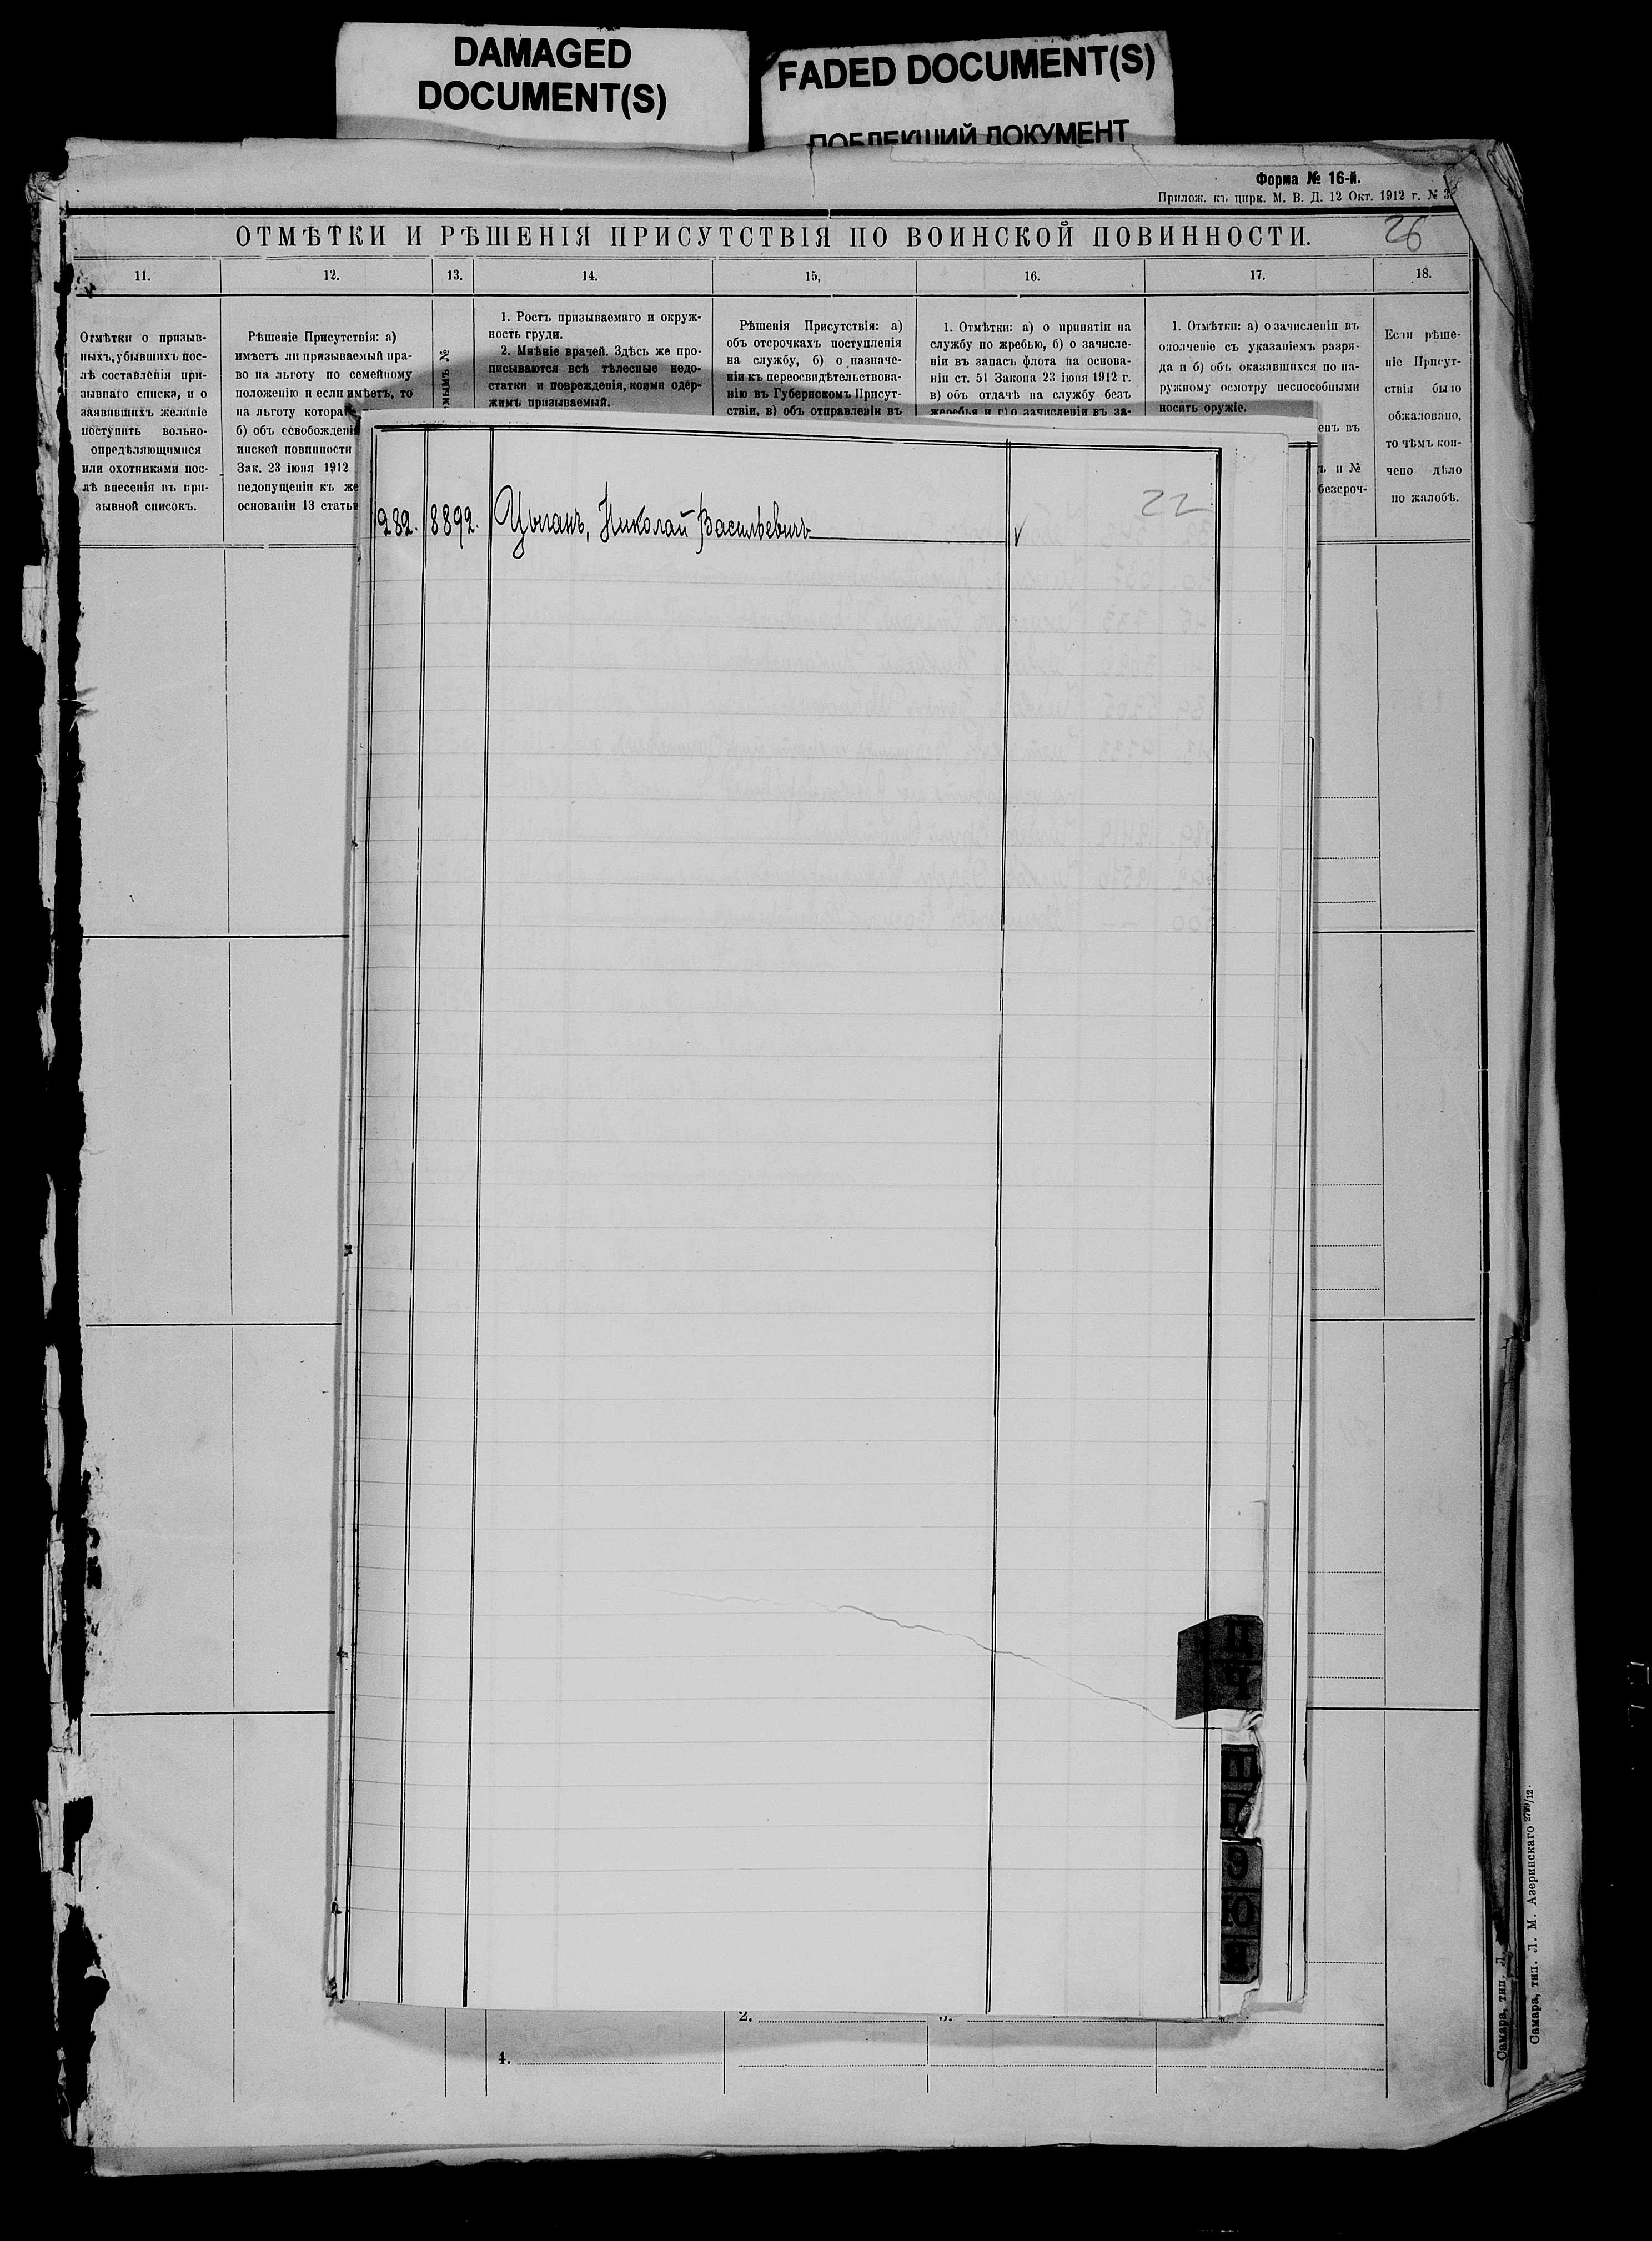 DAMAGED
DOCUMENT(S)
FADED DOCUMENT(S)
ПОБЛЕКШИЙ ДОКУМЕНТ
Форма № 16-й.
Прилож. къ цирк. М. В. Д. 12 Окт. 1912 г. № 3
ОТМѢТКИ И РѢШЕНІЯ ПРИСУТСТВІЯ ПО ВОИНСКОЙ ПОВИННОСТИ.
26
11.
12.
13.
14.
15,
16.
17.
18.
Отмѣтки о призыв-
ныхъ, убывшихъ пос-
лѣ составленія при-
зывнаго списка, и о
заявившихъ желаніе
поступить вольно-
опредѣляющимися
или охотниками пос-
лѣ внесенія въ при-
зывной списокъ.
Рѣшеніе Присутствія: а)
имѣетъ ли призываемый пра-
во на льготу по семейному
положенію и если имѣетъ, то
на льготу котора
б) объ освобожденіи
инской повинности
Зак. 23 іюня 1912
недопущеніи къ же
основаніи 13 стать
омымъ №
1. Ростъ призываемаго и окруж-
ность груди.
2. Мнѣніе врачей. Здѣсь же про-
писываются всѣ тѣлесные недо-
статки и поврежденія, коими одер-
жимъ призываемый.
Рѣшенія Присутствія: а)
объ отсрочкахъ поступленія
на службу, б) о назначе-
ніи къ переосвидѣтельствова-
нію въ Губернскомъ Присут-
ствіи, в) объ отправленіи въ
1. Отмѣтки: а) о принятіи на
службу по жребью, б) о зачисле-
ніи въ запасъ флота на основа-
ніи ст. 51 Закона 23 іюня 1912 г.
в) объ отдачѣ на службу безъ
жеребья и г) о зачисленіи въ за-
1. Отмѣтки: а) о зачисленіи въ
ополченіе съ указаніемъ разря-
да и б) объ оказавшихся по на-
ружному осмотру неспособными
носить оружіе.
енъ въ
ъ и №
безсроч-
Если рѣше-
ніе Присут-
ствія было
обжаловано,
то чѣмъ кон-
чено дѣло
по жалобѣ.
22
282. 8892. Цыганъ, Николай Васильевичъ
Ц
Ч
Э
Ю
Я
2.
3.
4.
Самара, тип. Л.
Самара, тип. Л. М. Азеринскаго